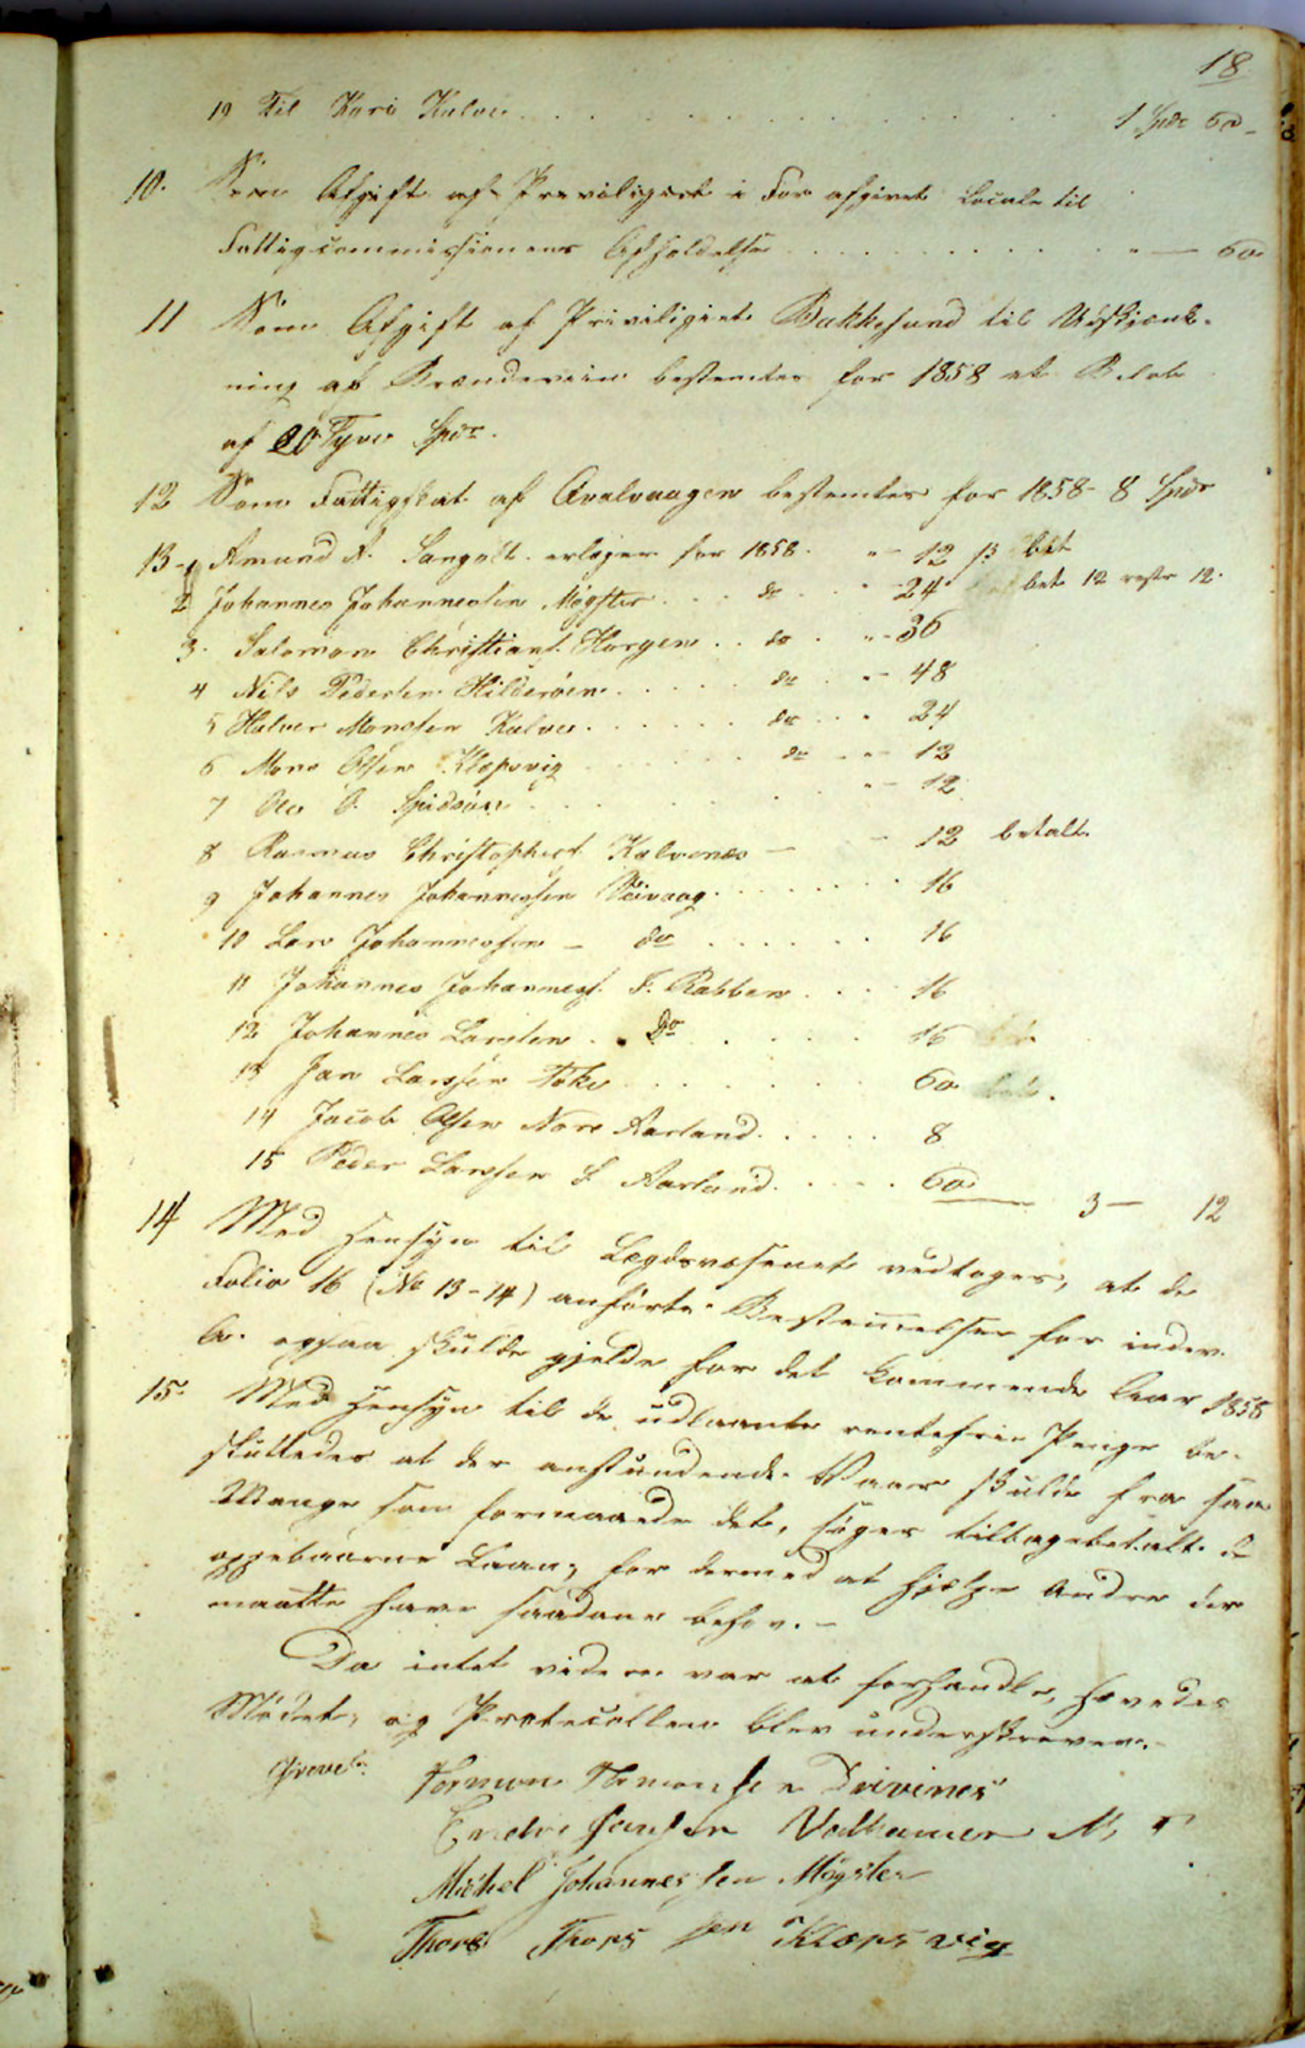 18
19 Til Kari Kalve . . . . . . . . . 1 Spdr 60 -
10. Som Afgift af Priviligeret i For afgivet Locale til
Fattigcommissionens Afholdelse . . . . . . . . . " — 60
11 Som Afgift af Priviligiet Bakkesund til Udskjænk-
ning af Brændeviin bestemtes for 1858 et Beløb
af 20 Tyve Spdr.
12 Som Fattigskat af Qvalvaagen bestemtes for 1858 - 8 Spdr
13 - 1 Amund A. Sangolt erlægger for 1858 . " - 12 ß bet
2 Johannes Johannessen Møgster . . . do . . " 24 bet 12 rest 12.
3. Salomon Christians. Horgen . . do . " - 36
4 Nils Pedersen Hilderøen . . . . . do . " - 48
5 Halver Monssen Kalve . . . . . . do . . " 24
6 Mons Olsen Klepsvig . . . . . . do . " - 12
7 Ole O. Spidsøen . . . . . . " - 12
8 Rasmus Christophers. Kalvenes — - 12 betalt
9 Johannes Johannessen Veivaag . . . . . . . 16
10 Lars Johannessen - do . . . . . . 16
11 Johannes Johanness. F. Rabben . . . . 16
12 Johannes Larssen . . Do . . . . . 16
13 Jan Larssen Toke . . . . . . . 60 bet.
14 Jacob Olsen Nore Aarland . . . . . 8
15 Peder Larssen S. Aarland . . . . . 60 3 — 12
14 Med Hensyn til Lægdsvæsenet vedtoges, at de
Folio 16 (No 13-14) anførte Bestemmelser for indev.
A. ogsaa skulde gjelde for det kommende Aar 1858
15. Med Hensyn til de udlaante rentefrie Penge be-
sluttedes at der anstundende Vaar skulde fra saa
Mange som formaaede det, søges tilbagebetalt de
oppebaarne Laan, for dermed at hjelpe Andre der
maatte have saadane behov. -
Da intet videre var at forhandle, hævedes
Mødet, og Protocollen blev underskreven. -
Tormon Thomassen Drivenes
Endre Hansen Valhammer M, P
Michel Johannessen Møgster
Thore Thorssen Klæpsvig